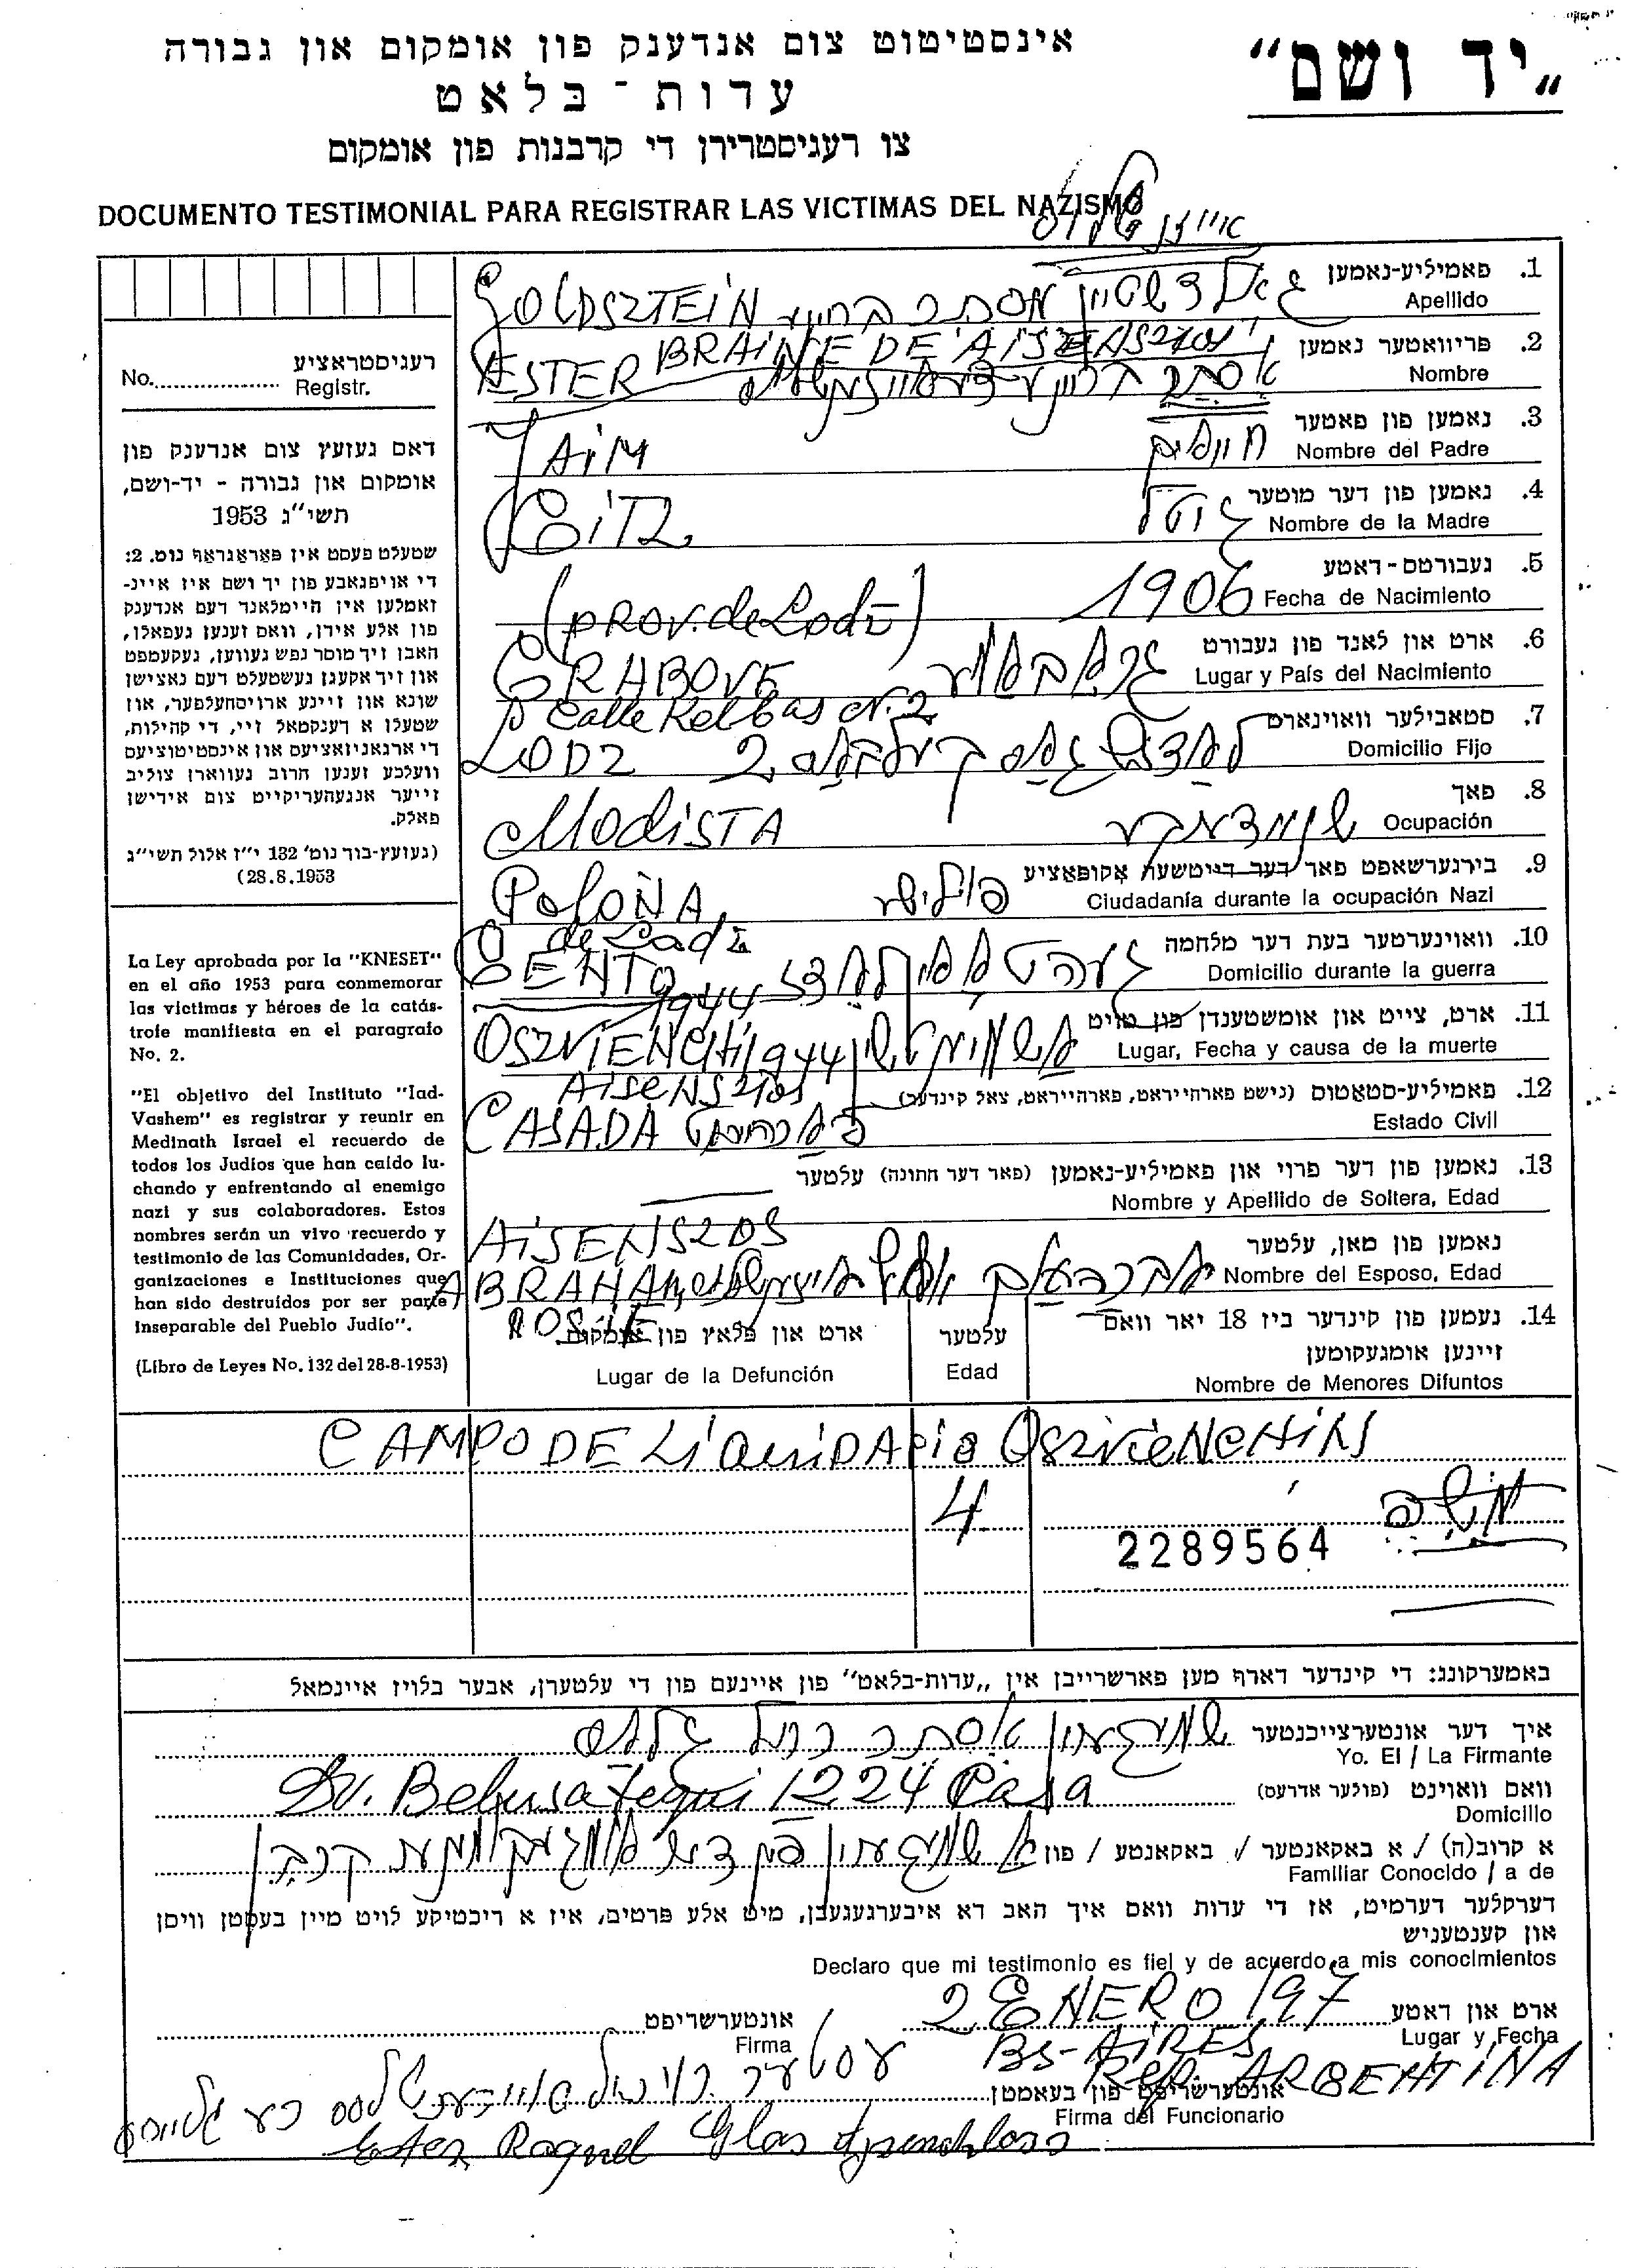 „יד ושם"
אינסטיטוט צום אנדענק פון אומקום און גבורה
עדות-בלאט
צו רעגיסטרירן די קרבנות פון אומקום
DOCUMENTO TESTIMONIAL PARA REGISTRAR LAS VICTIMAS DEL NAZISMO
1. פאמיליע-נאמען
Apellido
GOLDSZTEIN גאלדשטיין אסתר
2. פריוואטער נאמען
Nombre
ESTER BRAINE DE AISENSZLOS
3. נאמען פון פאטער
Nombre del Padre
JAIM חיים
4. נאמען פון דער מוטער
Nombre de la Madre
גיטל
5. געבורטס-דאטע
Fecha de Nacimiento
1906
(PROV. de Lodz)
6. ארט און לאנד פון געבורט
Lugar y País del Nacimiento
GRABOVE
7. סטאבילער וואוינארט
Domicilio Fijo
Calle Kelbas N. 2
LODZ
8. פאך
Ocupación
Modista
9. בירגערשאפט פאר דער דייטשער אקופאציע
Ciudadanía durante la ocupación Nazi
POLOÑA פויליש
10. וואוינערטער בעת דער מלחמה
Domicilio durante la guerra
de Lodz
GENTO געהטא אין לאדז
11. ארט, צייט און אומשטענדן פון טויט
Lugar, Fecha y causa de la muerte
1944
12. פאמיליע-סטאטוס (נישט פארהייראט, פארהייראט, צאל קינדער)
Estado Civil
CASADA
13. נאמען פון דער פרוי און פאמיליע-נאמען (פאר דער חתונה) עלטער
Nombre y Apellido de Soltera, Edad
נאמען פון מאן, עלטער
Nombre del Esposo, Edad
AISENSZLOS
ABRAHAM
14. נעמען פון קינדער ביז 18 יאר וואס
זיינען אומגעקומען
Nombre de Menores Difuntos
עלטער
Edad
ארט און פלאץ פון אומקום
Lugar de la Defunción
CAMPO DE LIQUIDACIO OSZVIENCHIN
4
2289564
No.
רעגיסטראציע
Registr.
דאס געזעץ צום אנדענק פון
אומקום און גבורה - יד-ושם,
תשי"ג 1953
שטעלט פעסט אין פאראגראף נומ. 2:
די אויפגאבע פון יד ושם איז איינ-
זאמלען אין היימלאנד דעם אנדענק
פון אלע אידן, וואס זענען געפאלן,
האבן זיך מוסר נפש געווען, געקעמפט
און זיך אקעגן געשטעלט דעם נאצישן
שונא און זיינע ארויסהעלפער, און
שטעלן א דענקמאל זיי, די קהילות,
די ארגאניזאציעס און אינסטיטוציעס
וועלכע זענען חרוב געווארן צוליב
זייער אנגעהעריקייט צום אידישן
פאלק.
(געזעץ-בוך נומ' 132 י"ז אלול תשי"ג
28.8.1953)
La Ley aprobada por la "KNESET"
en el año 1953 para conmemorar
las víctimas y héroes de la catás-
trofe manifiesta en el paragrafo
No. 2.
"El objetivo del Instituto "Iad-
Vashem" es registrar y reunir en
Medinath Israel el recuerdo de
todos los Judíos que han caído lu-
chando y enfrentando al enemigo
nazi y sus colaboradores. Estos
nombres serán un vivo recuerdo y
testimonio de las Comunidades, Or-
ganizaciones e Instituciones que
han sido destruídos por ser parte
inseparable del Pueblo Judío".
(Libro de Leyes No. 132 del 28-8-1953)
באמערקונג: די קינדער דארף מען פארשרייבן אין „עדות-בלאט" פון איינעם פון די עלטערן, אבער בלויז איינמאל
איך דער אונטערצייכנטער
Yo. El / La Firmante
וואס וואוינט (פולער אדרעס)
Domicilio
1224
א קרוב(ה) / א באקאנטער / באקאנטע / פון
Familiar Conocido / a de
דערקלער דערמיט, אז די עדות וואס איך האב דא איבערגעגעבן, מיט אלע פרטים, איז א ריכטיקע לויט מיין בעסטן וויסן
און קענטעניש
Declaro que mi testimonio es fiel y de acuerdo a mis conocimientos
ארט און דאטע
Lugar y Fecha
2 ENERO 197
BS-AIRES
Rep. ARGENTINA
אונטערשריפט
Firma
אונטערשריפט פון בעאמטן
Firma del Funcionario
Ester Raquel Glas